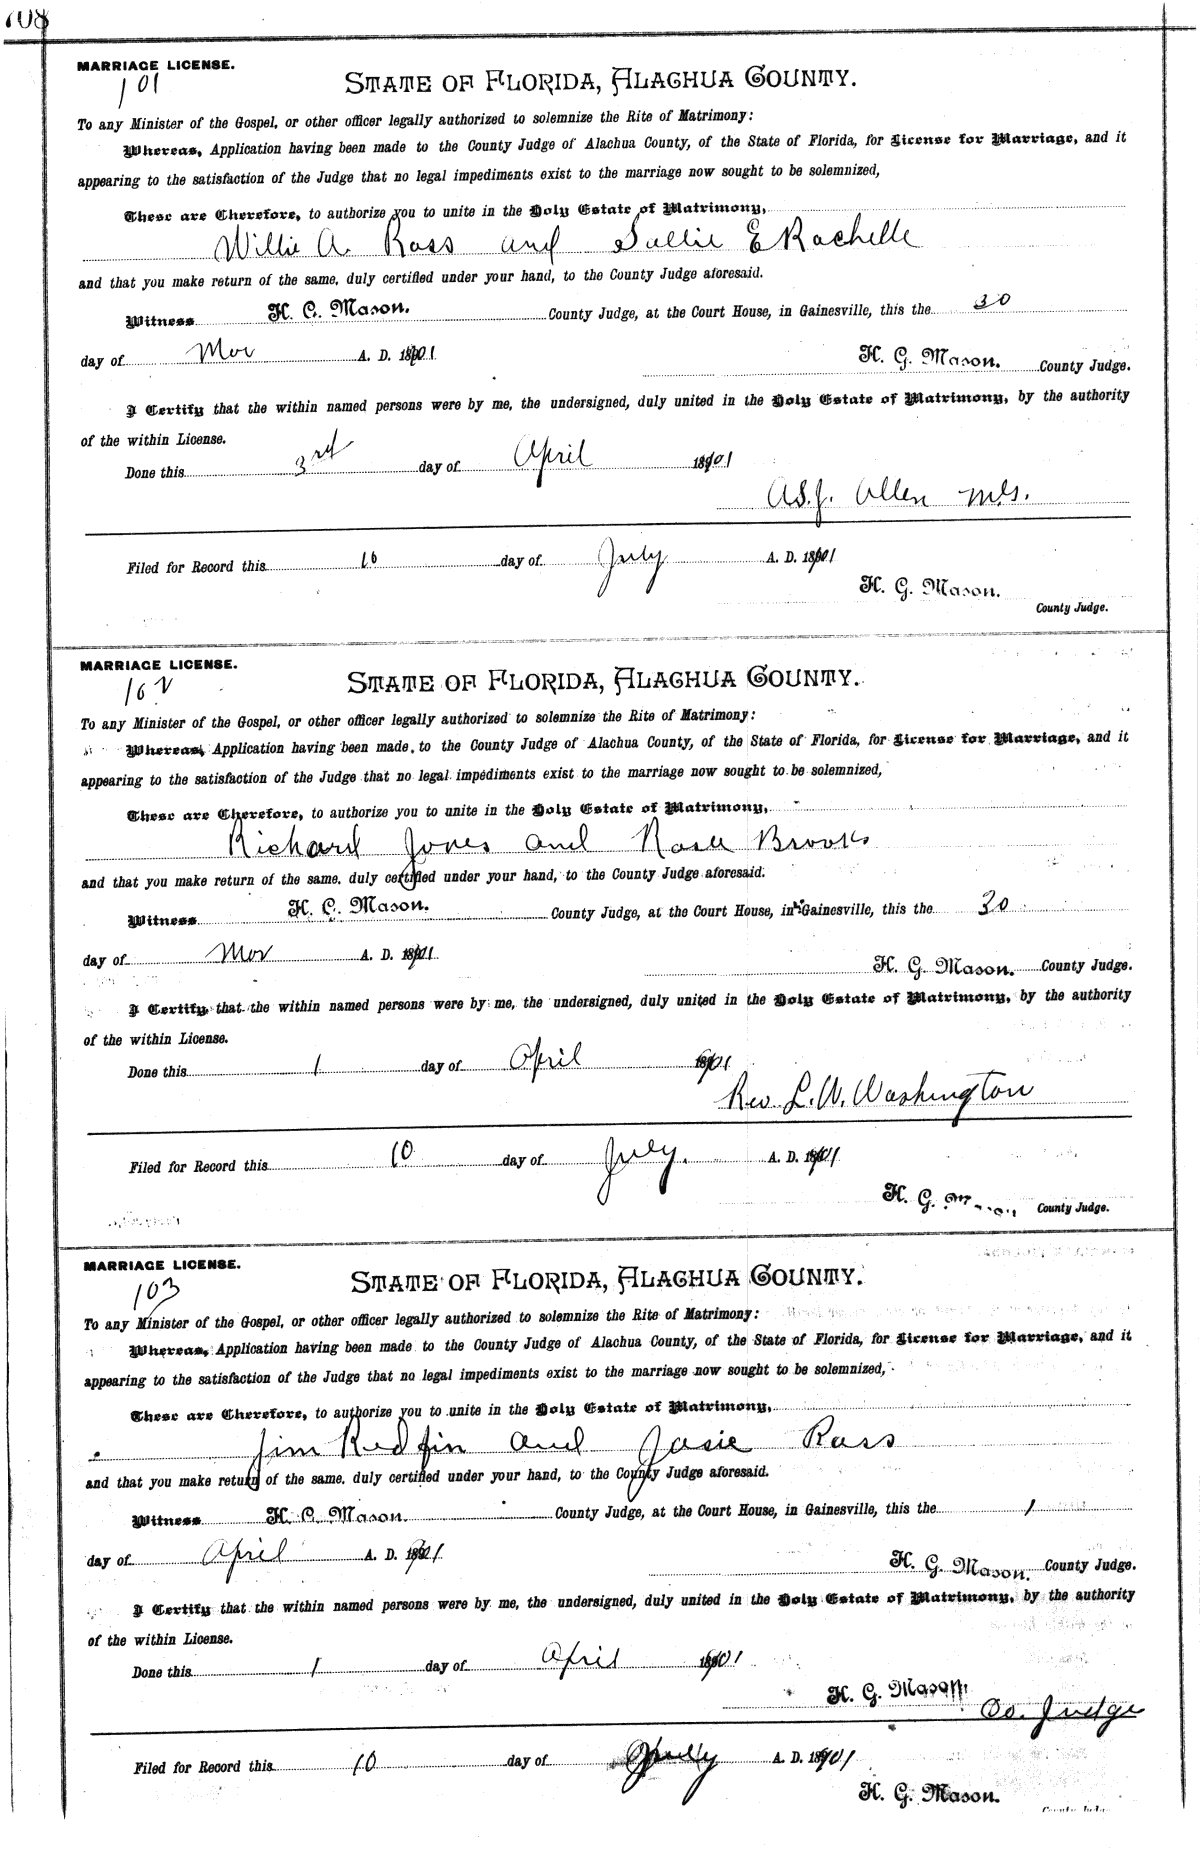 108
MARRIAGE LICENSE.
101
STATE OF FLORIDA, ALACHUA COUNTY.
To any Minister of the Gospel, or other officer legally authorized to solemnize the Rite of Matrimony:
Whereas, Application having been made to the County Judge of Alachua County, of the State of Florida, for License for Marriage, and it
appearing to the satisfaction of the Judge that no legal impediments exist to the marriage now sought to be solemnized,
These are Therefore, to authorize you to unite in the Holy Estate of Matrimony,
Willie A. Ross and Sallie E Rachelle
and that you make return of the same, duly certified under your hand, to the County Judge aforesaid.
Witness H. G. Mason. County Judge, at the Court House, in Gainesville, this the 30
day of Mar A. D. 1901 H. G. Mason. County Judge.
I Certify that the within named persons were by me, the undersigned, duly united in the Holy Estate of Matrimony, by the authority
of the within License.
Done this 3rd day of April 1901
A.S.J. Allen M.G.
Filed for Record this 10 day of July A. D. 1901
H. G. Mason.
County Judge.
MARRIAGE LICENSE.
102
STATE OF FLORIDA, ALACHUA COUNTY.
To any Minister of the Gospel, or other officer legally authorized to solemnize the Rite of Matrimony:
Whereas, Application having been made to the County Judge of Alachua County, of the State of Florida, for License for Marriage, and it
appearing to the satisfaction of the Judge that no legal impediments exist to the marriage now sought to be solemnized,
These are Therefore, to authorize you to unite in the Holy Estate of Matrimony,
Richard Jones and Rosa Brooks
and that you make return of the same, duly certified under your hand, to the County Judge aforesaid.
Witness H. G. Mason. County Judge, at the Court House, in Gainesville, this the 30
day of Mar A. D. 1901 H. G. Mason. County Judge.
I Certify that the within named persons were by me, the undersigned, duly united in the Holy Estate of Matrimony, by the authority
of the within License.
Done this 1 day of April 1901
Rev L. W. Washington
Filed for Record this 10 day of July. A. D. 1901
H. G. Mason County Judge.
MARRIAGE LICENSE.
103
STATE OF FLORIDA, ALACHUA COUNTY.
To any Minister of the Gospel, or other officer legally authorized to solemnize the Rite of Matrimony:
Whereas, Application having been made to the County Judge of Alachua County, of the State of Florida, for License for Marriage, and it
appearing to the satisfaction of the Judge that no legal impediments exist to the marriage now sought to be solemnized,
These are Therefore, to authorize you to unite in the Holy Estate of Matrimony,
Jim Redfin and Josie Ross
and that you make return of the same, duly certified under your hand, to the County Judge aforesaid.
Witness H. G. Mason. County Judge, at the Court House, in Gainesville, this the 1
day of April A. D. 1901 H. G. Mason. County Judge.
I Certify that the within named persons were by me, the undersigned, duly united in the Holy Estate of Matrimony, by the authority
of the within License.
Done this 1 day of April 1901
H. G. Mason Co. Judge
Filed for Record this 10 day of July A. D. 1901
H. G. Mason.
County Judge